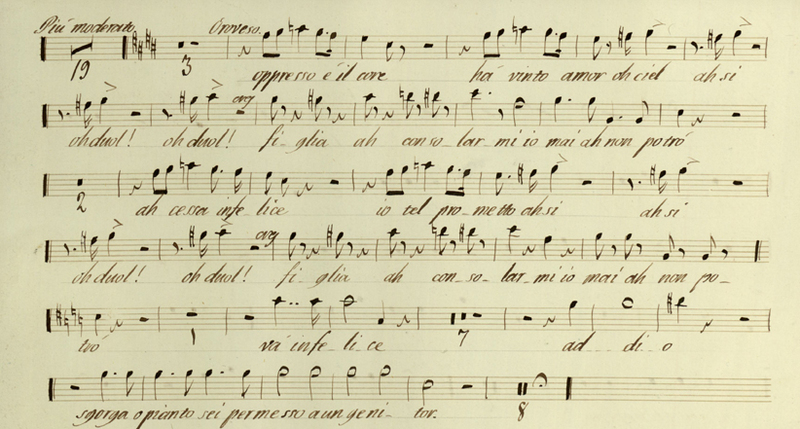 Più moderato Oroveso.
19 3 oppresso è il core hà vinto amor oh ciel ah si
oh duol! oh duol! fi- glia ah con so- lar- mi io mai ah non potrò
2 ah cessa infe- lice io tel pro- metto ah si ah si
oh duol! oh duol! fi- glia ah con- so- lar- mi io mai ah non po-
trò 1 và infe- li- ce 7 ad- di- o
sgorga o pianto sei permesso a un geni- tor. 8